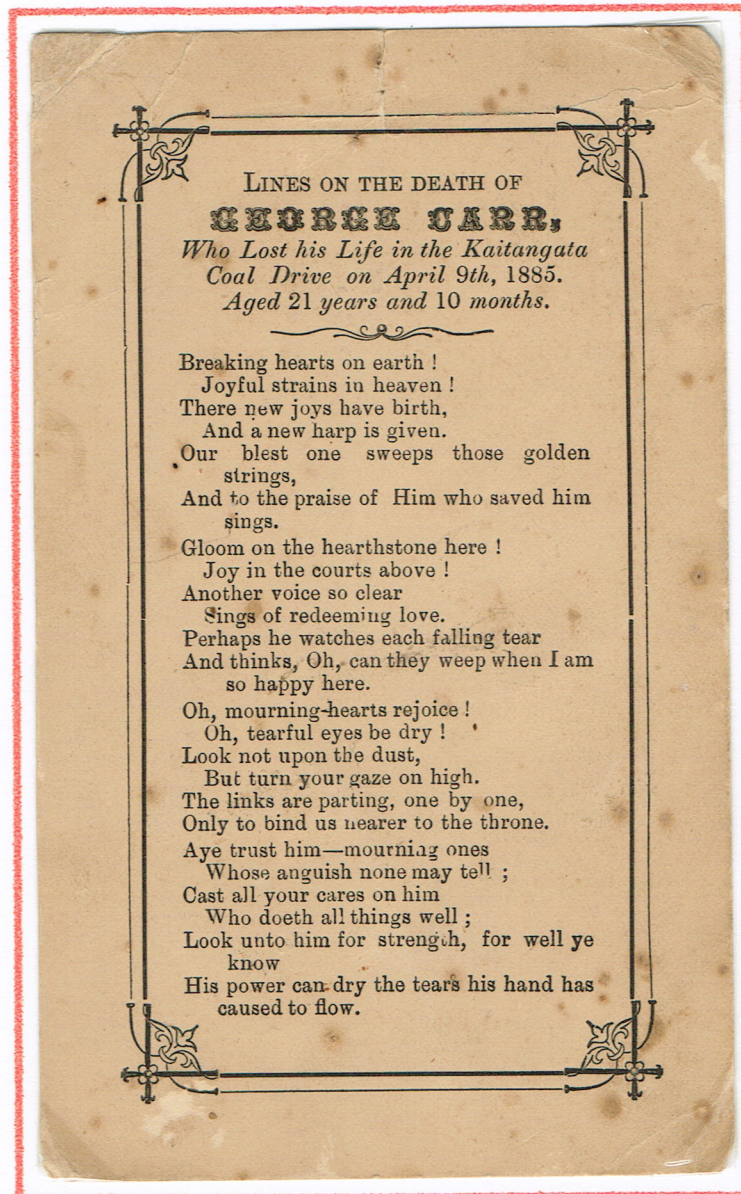 LINES ON THE DEATH OF
GEORGE CARR,
Who Lost his Life in the Kaitangata
Coal Drive on April 9th, 1885.
Aged 21 years and 10 months.
Breaking hearts on earth !
Joyful strains in heaven !
There new joys have birth,
And a new harp is given.
Our blest one sweeps those golden
strings,
And to the praise of Him who saved him
sings.
Gloom on the hearthstone here !
Joy in the courts above !
Another voice so clear
Sings of redeeming love.
Perhaps he watches each falling tear
And thinks, Oh, can they weep when I am
so happy here.
Oh, mourning-hearts rejoice !
Oh, tearful eyes be dry !
Look not upon the dust,
But turn your gaze on high.
The links are parting, one by one,
Only to bind us nearer to the throne.
Aye trust him—mourning ones
Whose anguish none may tell ;
Cast all your cares on him
Who doeth all things well ;
Look unto him for strength, for well ye
know
His power can dry the tears his hand has
caused to flow.